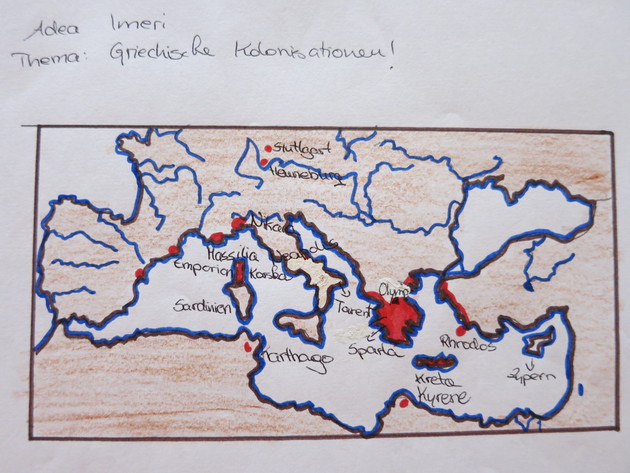 Adea Imeri
Thema: Griechische Kolonisationen!
Stuttgart
Heuneburg
Nikaia
Massilia Neapolis
Emporion Korsika
Sardinien
Olymp
Tarent
Sparta
Rhodos
Karthago
Zypern
Kreta
Kyrene